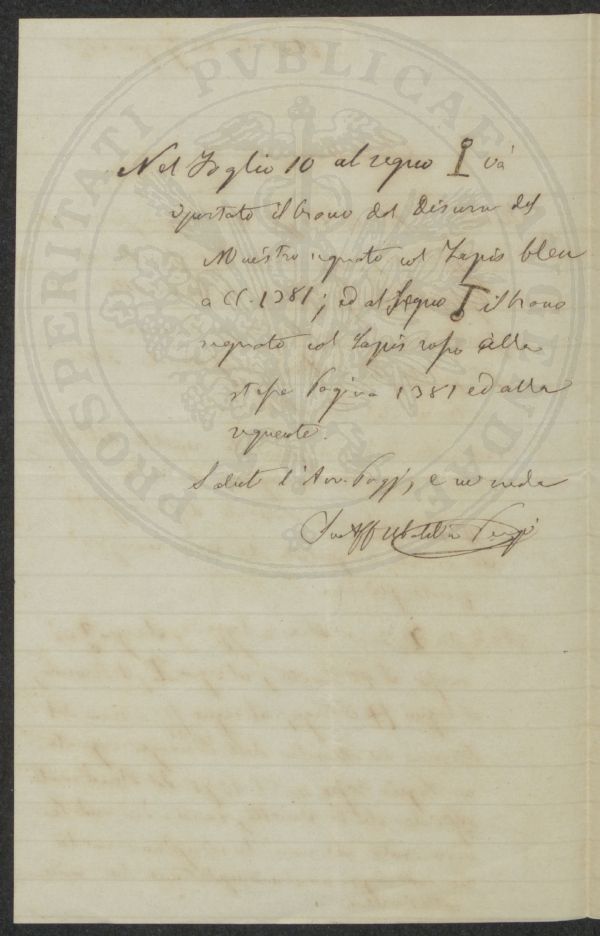 PROSPERITATI PVBLICAE
Nel Foglio 10 al segno va
riportato il brano del Discorso del
Maestro segnato col Lapis bleu
a C. 1381; ed al Segno il brano
segnato col Lapis rosso alla
stessa Pagina 1381 ed alla
seguente.
Saluti l'Avv. Poggi, e mi creda
Suo Aff Ubaldino Peruzzi